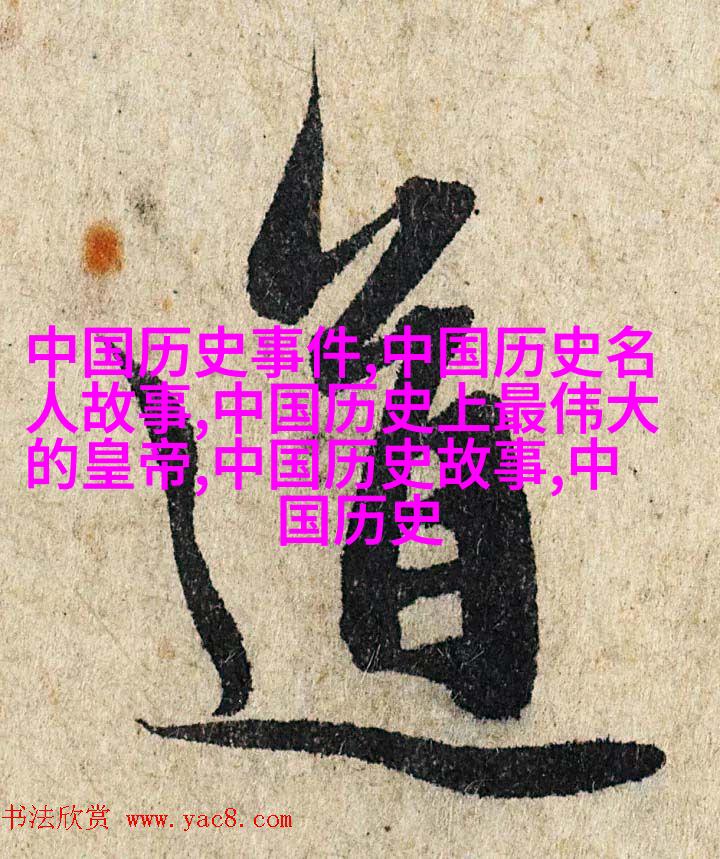 道
中国历史事件,中国历史名
人故事,中国历史上最伟大
的皇帝,中国历史故事,中
国历史
书法欣赏 www.yac8.com